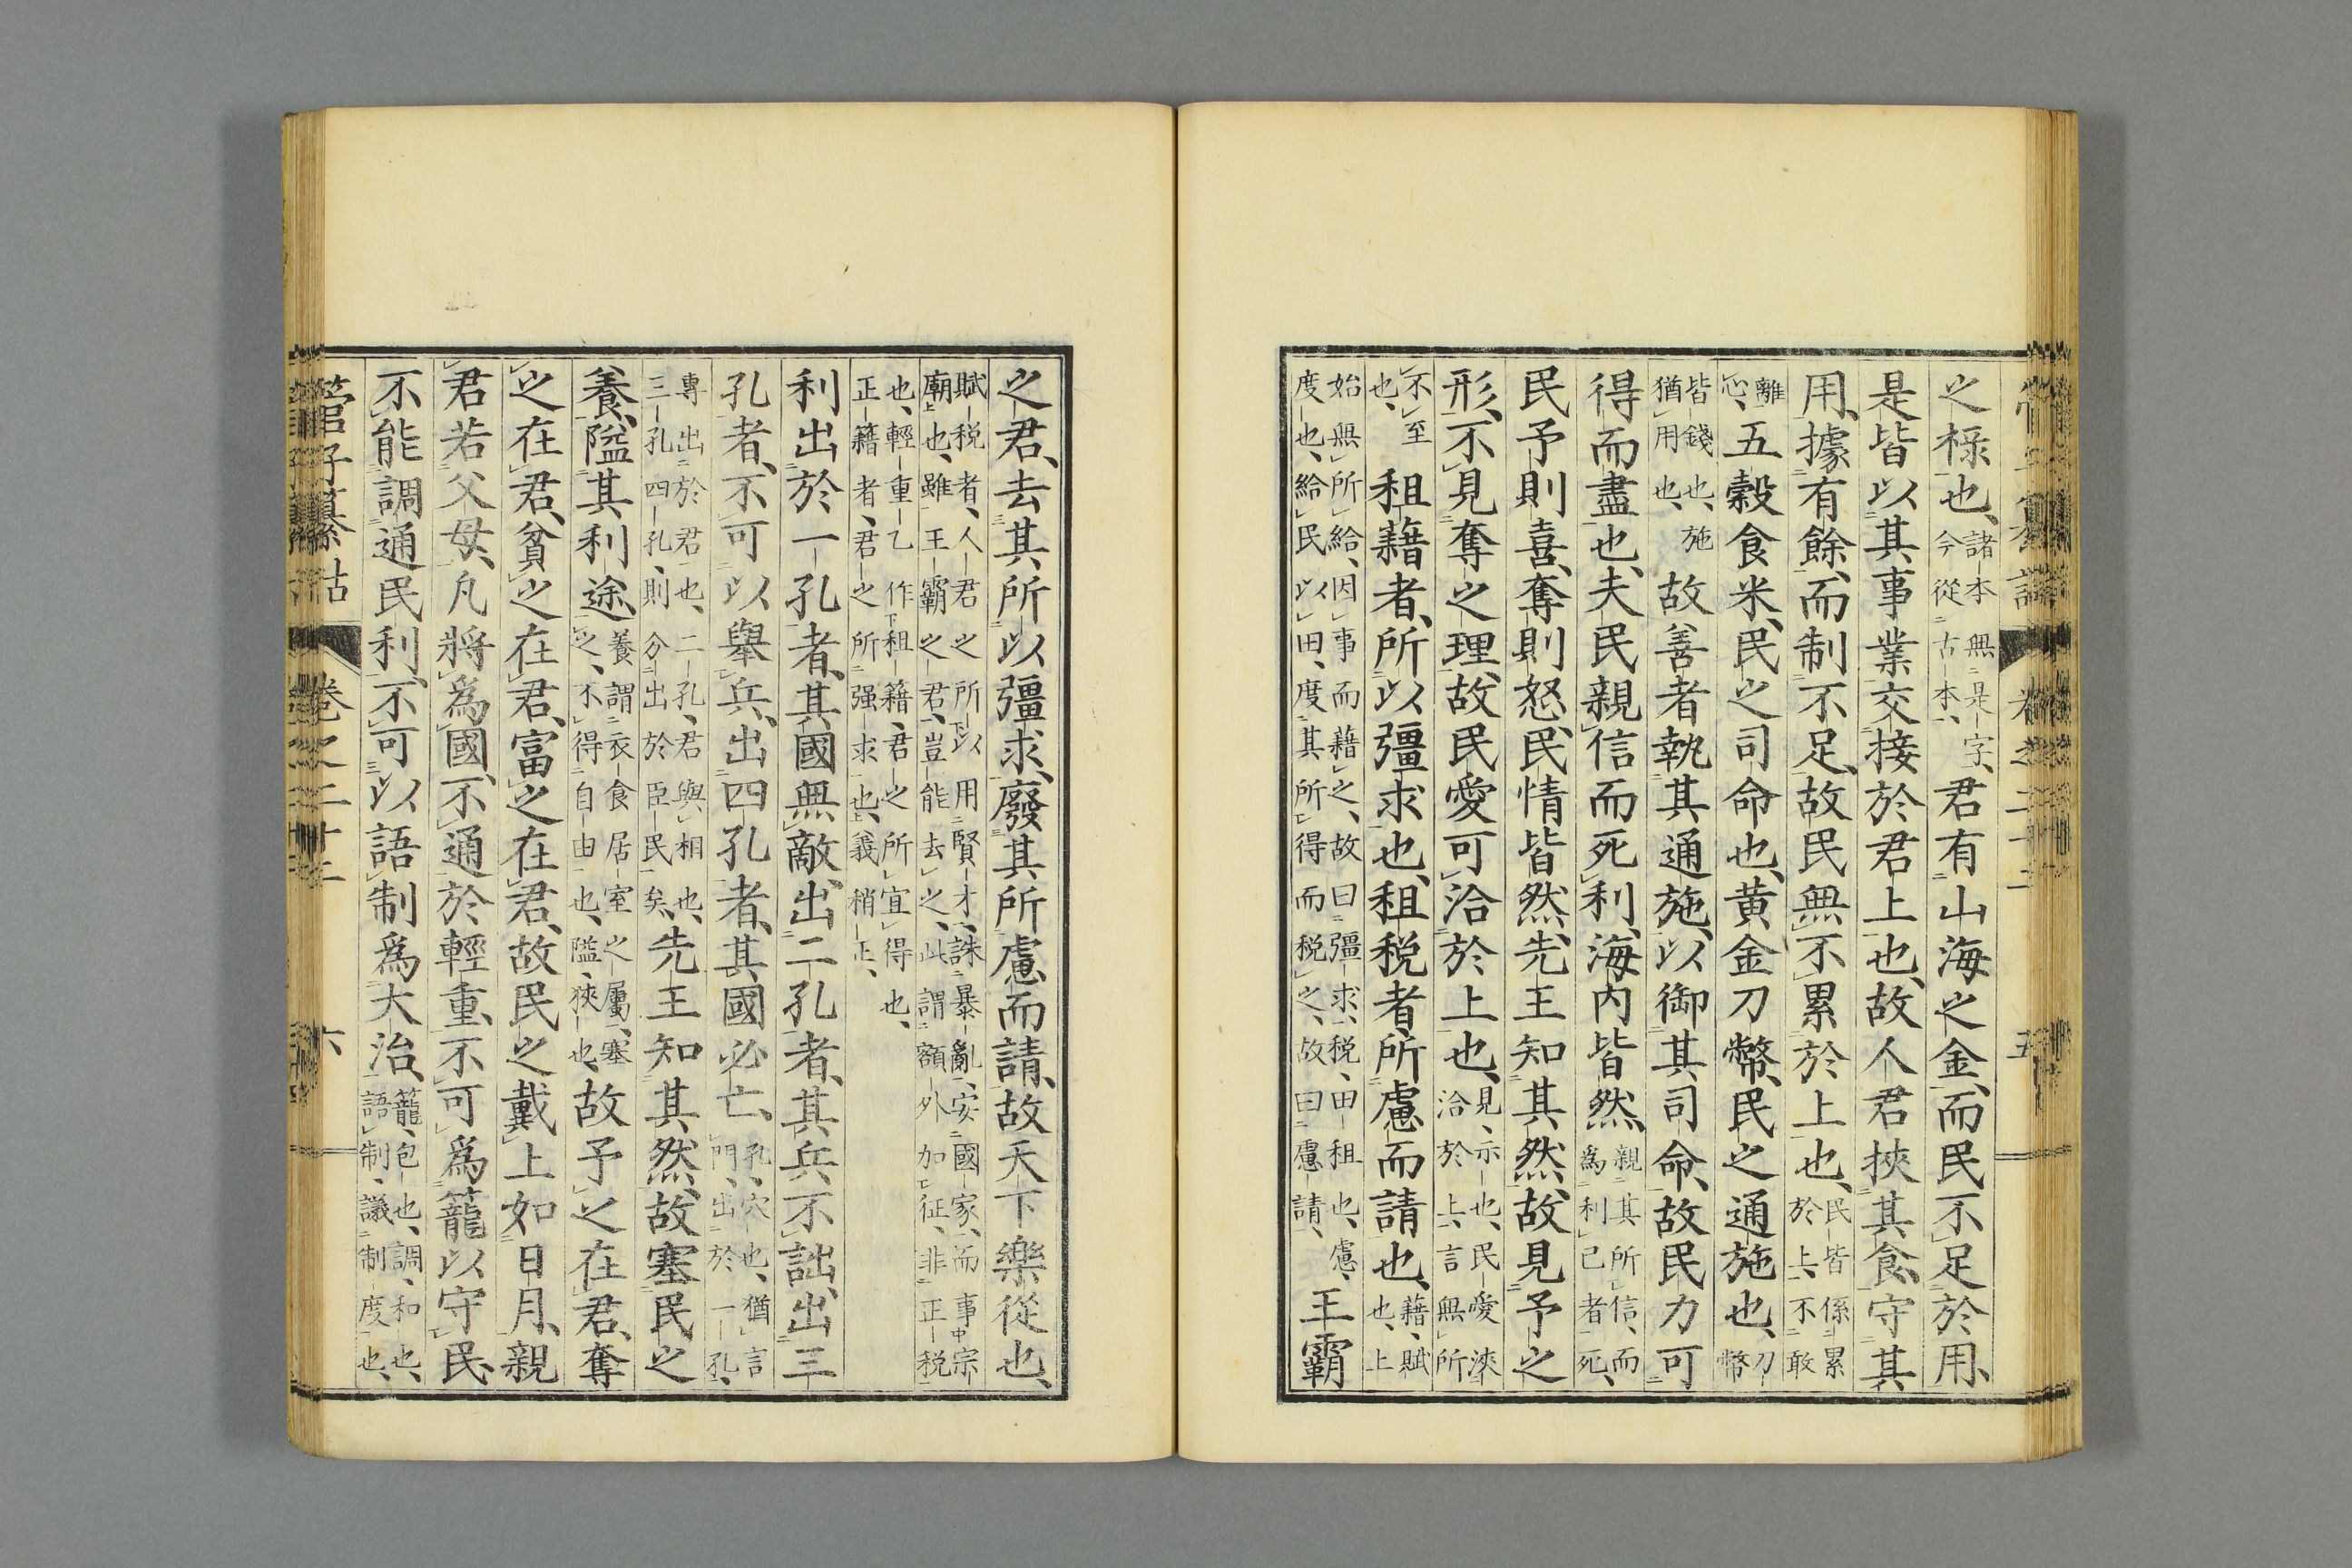 之祿也、諸本無是字、今從古本、君有山海之金、而民不足於用、
是皆以其事業交接於君上也、故人君挾其食、守其
用、據有餘、而制不足、故民無不累於上也、民皆係累於上、不敢
離心、五穀食米、民之司命也、黄金刀幣、民之通施也、刀幣
皆錢也、施猶用也、故善者執其通施、以御其司命、故民力可
得而盡也、夫民親信而死利、海内皆然、親其所信、而為利己者死、
民予則喜、奪則怒、民情皆然、先王知其然、故見予之
形、不見奪之理、故民愛可洽於上也、見、示也、民愛浹洽於上、言無所
不至也、租藉者、所以彊求也、租税者、所慮而請也、藉、賦也、上
始無所給、因事而藉之、故曰彊求、税、田租也、慮、度也、給民以田、度其所得而税之、故曰慮請、王霸
之君、去其所以彊求、廢其所慮而請、故天下樂從也、
賦税者、人君之所以用賢才、誅暴亂、安國家、而事宗廟也、雖王霸之君、豈能去之、此謂額外加征、非正税
也、輕重乙作租籍、君之所宜得也、正籍者、君之所强求也、義稍正、
利出於一孔者、其國無敵、出二孔者、其兵不詘、出三
孔者、不可以舉兵、出四孔者、其國必亡、孔、穴也、猶言門、出於一孔、
專出於君也、二孔、君與相也、三孔四孔、則分出於臣民矣、先王知其然、故塞民之
養、隘其利途、養謂衣食居室之屬、塞之、不得自由也、隘、狹也、故予之在君、奪
之在君、貧之在君、富之在君、故民之戴上如日月、親
君若父母、凡將爲國、不通於輕重、不可爲籠以守民、
不能調通民利、不可以語制爲大治、籠、包也、調、和也、語制、議制度也、
管子纂詁 卷之二十二 六